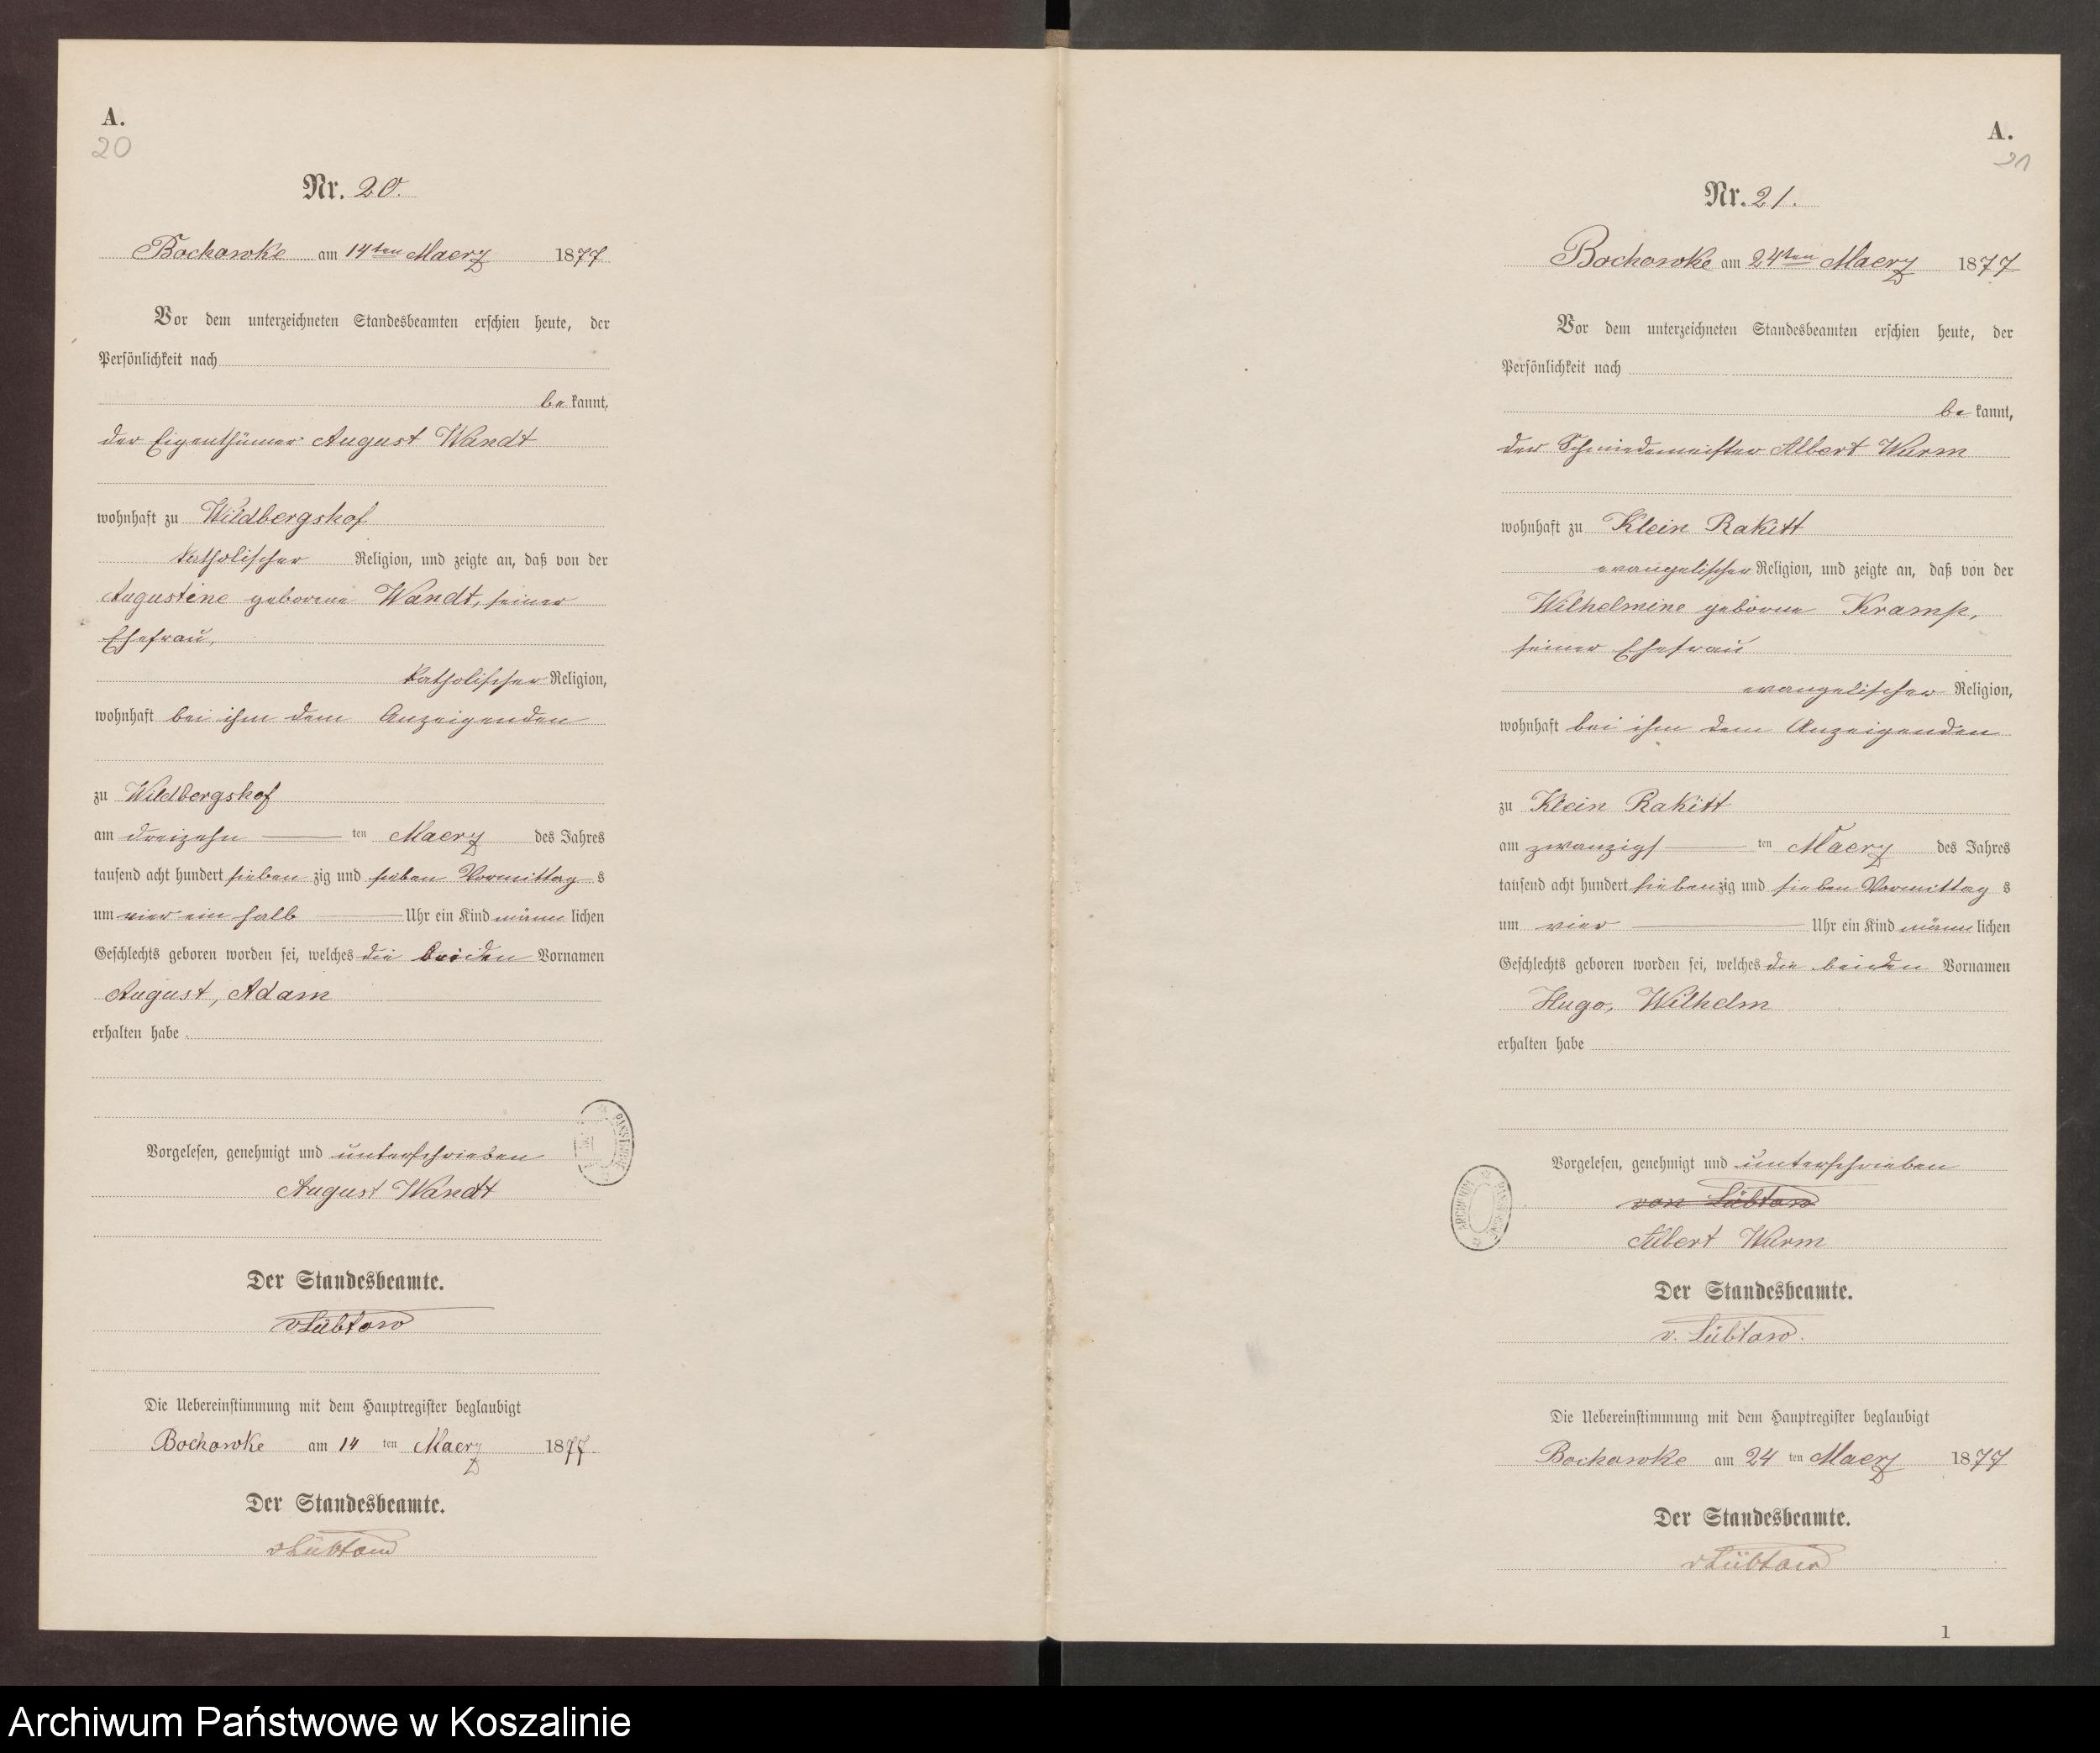 A.
20
Nr. 20.
Bochowke am 14ten Maerz 1877
Vor dem unterzeichneten Standesbeamten erschien heute, der
Persönlichkeit nach
be kannt,
der Eigenthümer August Wandt
wohnhaft zu Wildbergshof
katholischer Religion, und zeigte an, daß von der
Augustine geborene Wandt, seiner
Ehefrau,
katholischer Religion,
wohnhaft bei ihm dem Anzeigenden
zu Wildbergshof
am dreizehn ten Maerz des Jahres
tausend acht hundert sieben zig und sieben Vormittag s
um vier ein halb Uhr ein Kind männ lichen
Geschlechts geboren worden sei, welches die beiden Vornamen
August, Adam
erhalten habe
Vorgelesen, genehmigt und unterschrieben
August Wandt
Der Standesbeamte.
vLübtow
Die Uebereinstimmung mit dem Hauptregister beglaubigt
Bochowke am 14 ten Maerz 1877.
Der Standesbeamte.
vLübtow
A.
21
Nr. 21.
Bochowke am 24ten Maerz 1877
Vor dem unterzeichneten Standesbeamten erschien heute, der
Persönlichkeit nach
be kannt,
der Schmiedemeister Albert Wurm
wohnhaft zu Klein Rakitt
evangelischer Religion, und zeigte an, daß von der
Wilhelmine geborne Kramp,
seiner Ehefrau
evangelischer Religion,
wohnhaft bei ihm dem Anzeigenden
zu Klein Rakitt
am zwanzigs ten Maerz des Jahres
tausend acht hundert siebenzig und sieben Vormittag s
um vier Uhr ein Kind männ lichen
Geschlechts geboren worden sei, welches die beiden Vornamen
Hugo, Wilhelm
erhalten habe
Vorgelesen, genehmigt und unterschrieben
von Lübtow
Albert Wurm
ARCHIWUM
Der Standesbeamte.
v. Lübtow.
Die Uebereinstimmung mit dem Hauptregister beglaubigt
Bochowke am 24 ten Maerz 1877
Der Standesbeamte.
vLübtow
1
Archiwum Państwowe w Koszalinie